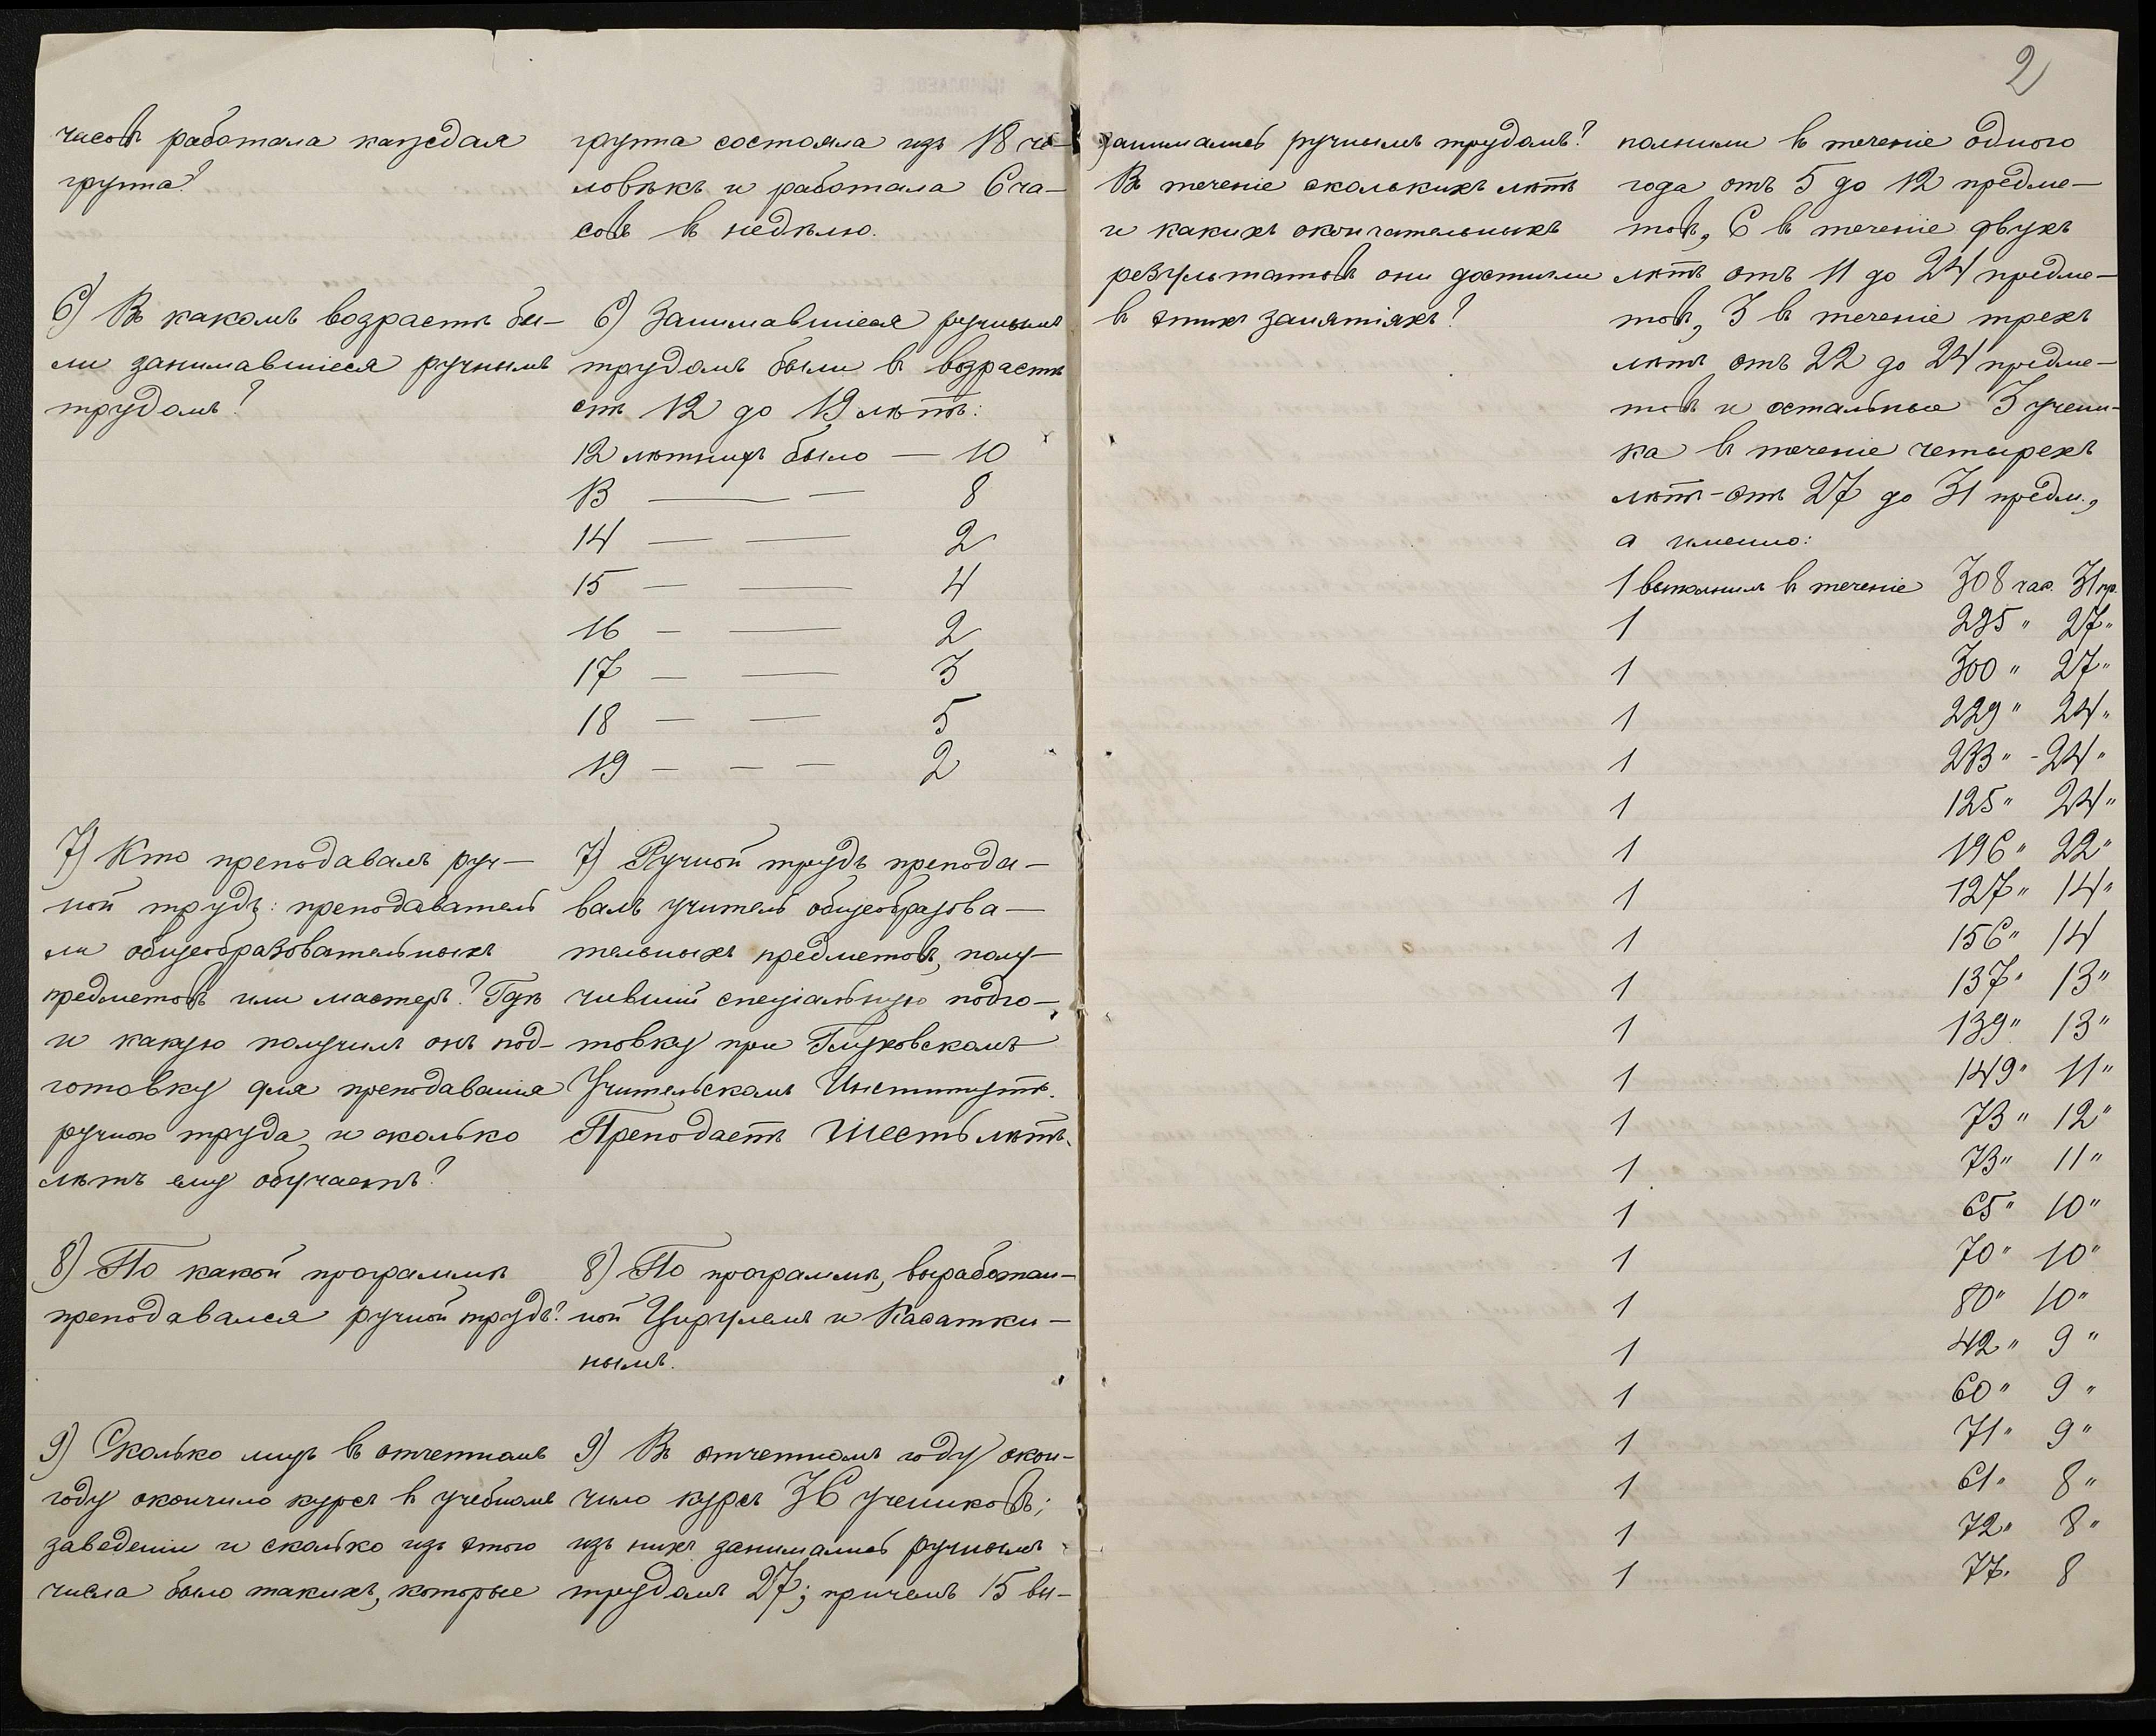 часовъ работала каждая
группа?
6) Въ какомъ возрастѣ бы-
ли занимавшіеся ручнымъ
трудомъ?
7) Кто преподавалъ руч-
ной трудъ: преподаватель
ли общеобразовательныхъ
предметовъ или мастеръ? Гдѣ
и какую получилъ онъ под-
готовку для преподаванія
ручного труда, и сколько
лѣтъ ему обучаетъ?
8) По какой программѣ
преподавался ручной трудъ?
9) Сколько лицъ въ отчетномъ
году окончило курсъ въ учебномъ
заведеніи и сколько изъ этого
числа было такихъ, которые
группа состояла изъ 18 че-
ловѣкъ и работала 6 ча-
совъ въ недѣлю.
6) Занимавшіеся ручнымъ
трудомъ были въ возрастѣ
отъ 12 до 19 лѣтъ:
12 лѣтнихъ было — 10
13 — — 8
14 — — 2
15 — — 4
16 — — 2
17 — — 3
18 — — 5
19 — — — 2
7) Ручной трудъ препода-
валъ учитель общеобразова-
тельныхъ предметовъ, полу-
чившій спеціальную подго-
товку при Глуховскомъ
Учительскомъ Институтѣ.
Преподаетъ шесть лѣтъ.
8) По программѣ, выработан-
ной Цирулемъ и Касатки-
нымъ.
9) Въ отчетномъ году окон-
чило курсъ 36 учениковъ;
изъ нихъ занимались ручнымъ
трудомъ 27; причемъ 15 вы-
2
занимались ручнымъ трудомъ?
Въ теченіе сколькихъ лѣтъ
и какихъ окончательныхъ
результатовъ они достигли
въ этихъ занятіяхъ?
полнили въ теченіе одного
года отъ 5 до 12 предме-
товъ, 6 въ теченіе двухъ
лѣтъ отъ 11 до 24 предме-
товъ, 3 въ теченіе трехъ
лѣтъ отъ 22 до 24 предме-
товъ и остальные 3 учени-
ка въ теченіе четырехъ
лѣтъ - отъ 27 до 31 предм.,
а именно:
1 выполнилъ въ теченіе 308 час. 31 пр.
1 295 " 27 "
1 300 " 27 "
1 229 " 24 "
1 233 " - 24 "
1 125 " 24 "
1 196 " 22 "
1 127 " 14 "
1 156 " 14
1 137 " 13 "
1 139 " 13 "
1 149 " 11 "
1 73 " 12 "
1 73 " 11 "
1 65 " 10 "
1 70 " 10 "
1 80 " 10 "
1 42 " 9 "
1 60 " 9 "
1 71 " 9 "
1 61 " 8 "
1 72 " 8 "
1 77 " 8